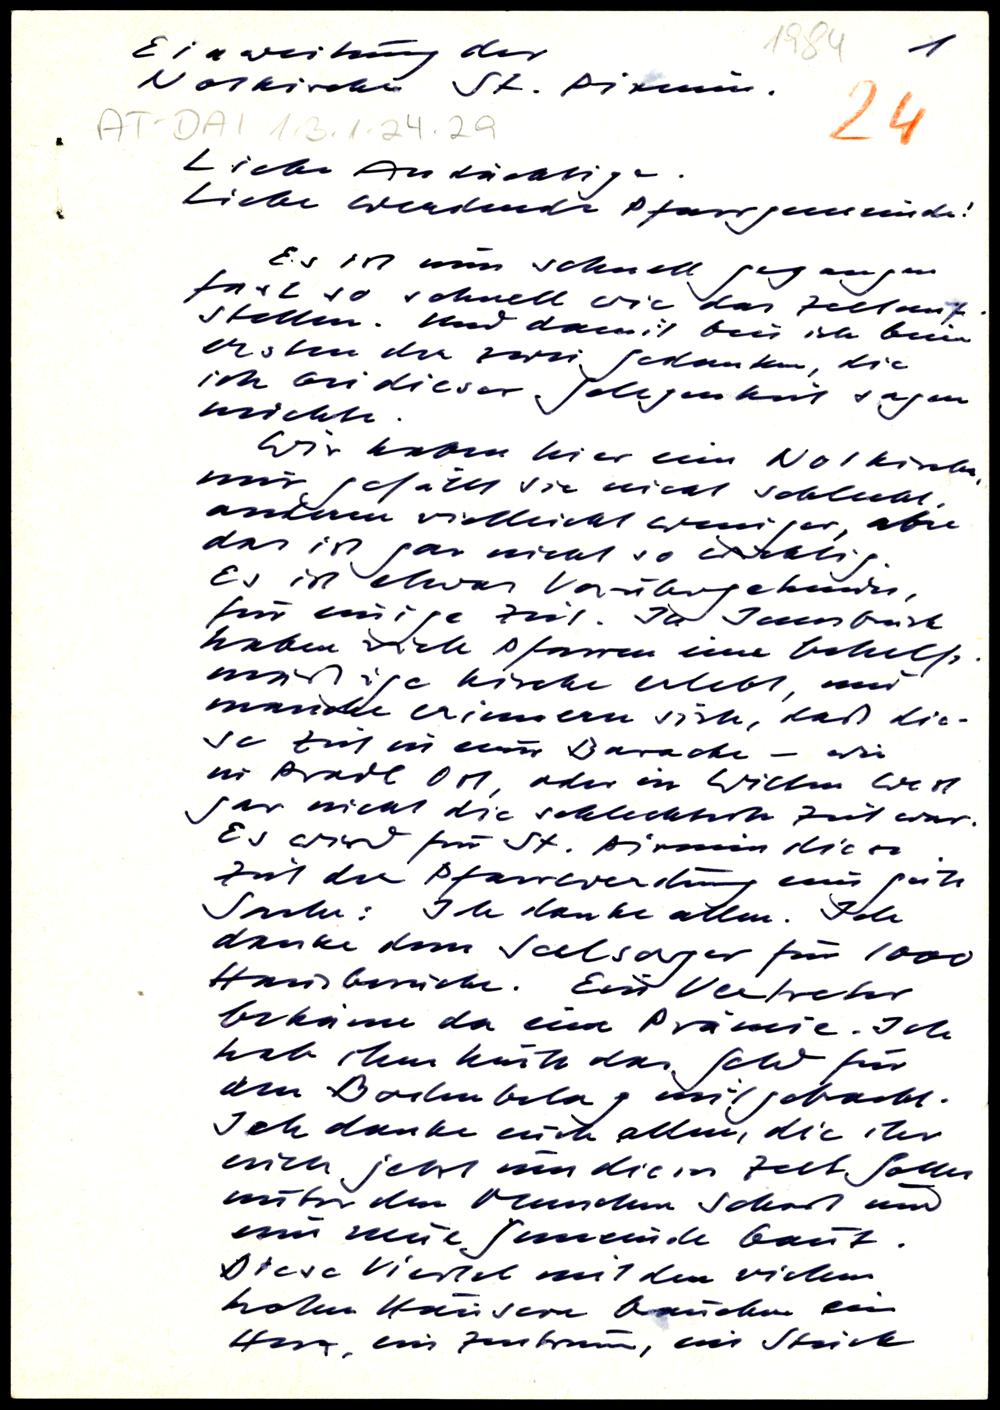 1984 1
Einweihung der
Notkirche St. Pirmin.
24
AT-DAI 1.3.1.24.29
Liebe Andächtige.
Liebe werdende Pfarrgemeinde!
Es ist nun schnell gegangen
fast so schnell wie das Zeltauf-
stellen. Und damit bin ich beim
ersten der zwei Gedanken, die
ich bei dieser Gelegenheit sagen
möchte.
Wir haben hier eine Notkirche,
mir gefällt sie nicht schlecht,
anderen vielleicht weniger, aber
das ist gar nicht so wichtig.
Es ist etwas Vorübergehendes,
für einige Zeit. In Innsbruck
haben viele Pfarren eine behelfs-
mäßige Kirche erlebt, und
manche erinnern sich, daß die-
se Zeit in einer Baracke – wie
in Pradl Ost, oder in Wilten West
gar nicht die schlechteste Zeit war.
Es wird für St. Pirmin diese
Zeit der Pfarrwerdung eine gute
Sache: Ich danke allen. Ich
danke dem Seelsorger für 1000
Hausbesuche. Ein Vertreter
bekäme da eine Prämie. Ich
hab ihm heute das Geld für
den Bodenbelag mitgebracht.
Ich danke euch allen, die ihr
euch jetzt um dieses Zelt Gottes
unter den Menschen schart und
eine neue Gemeinde baut.
Diese Viertel mit den vielen
hohen Häusern brauchen ein
Herz, ein Zentrum, ein Stück